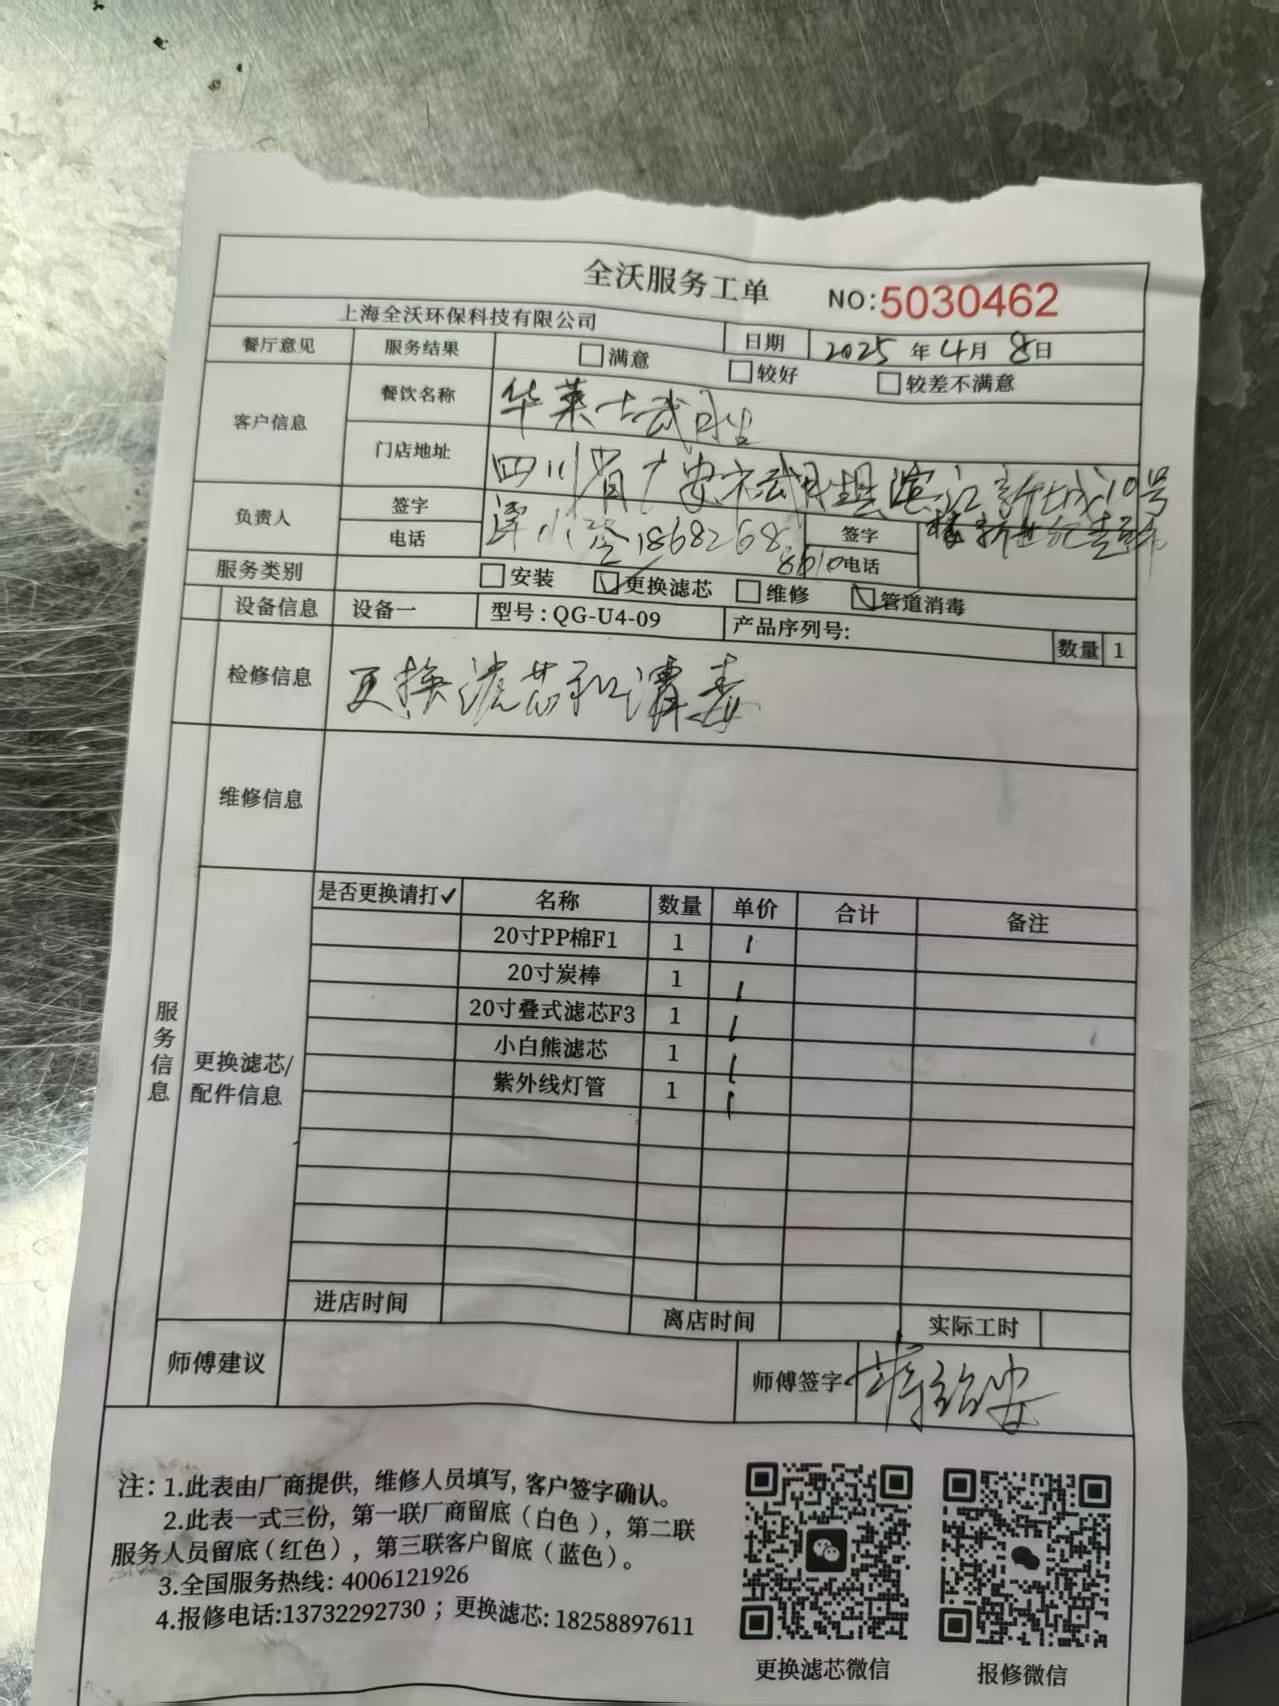 全沃服务工单 NO:5030462
上海全沃环保科技有限公司 日期 2025 年 4 月 8 日
餐厅意见 服务结果 □满意 □较好 □较差不满意
客户信息 餐饮名称 华莱士武胜
门店地址 四川省广安市武胜县滨江新城10号
负责人 签字 签字
电话 18682688610 电话
服务类别 □安装 ☑更换滤芯 □维修 ☑管道消毒
设备信息 设备一 型号:QG-U4-09 产品序列号: 数量 1
检修信息 更换滤芯和消毒
维修信息
服务信息
更换滤芯/
配件信息
是否更换请打✓ 名称 数量 单价 合计 备注
20寸PP棉F1 1
20寸炭棒 1
20寸叠式滤芯F3 1
小白熊滤芯 1
紫外线灯管 1
进店时间 离店时间 实际工时
师傅建议 师傅签字
注: 1.此表由厂商提供，维修人员填写, 客户签字确认。
2.此表一式三份，第一联厂商留底（白色），第二联
服务人员留底（红色），第三联客户留底（蓝色）。
3.全国服务热线: 4006121926
4.报修电话:13732292730；更换滤芯: 18258897611
更换滤芯微信 报修微信